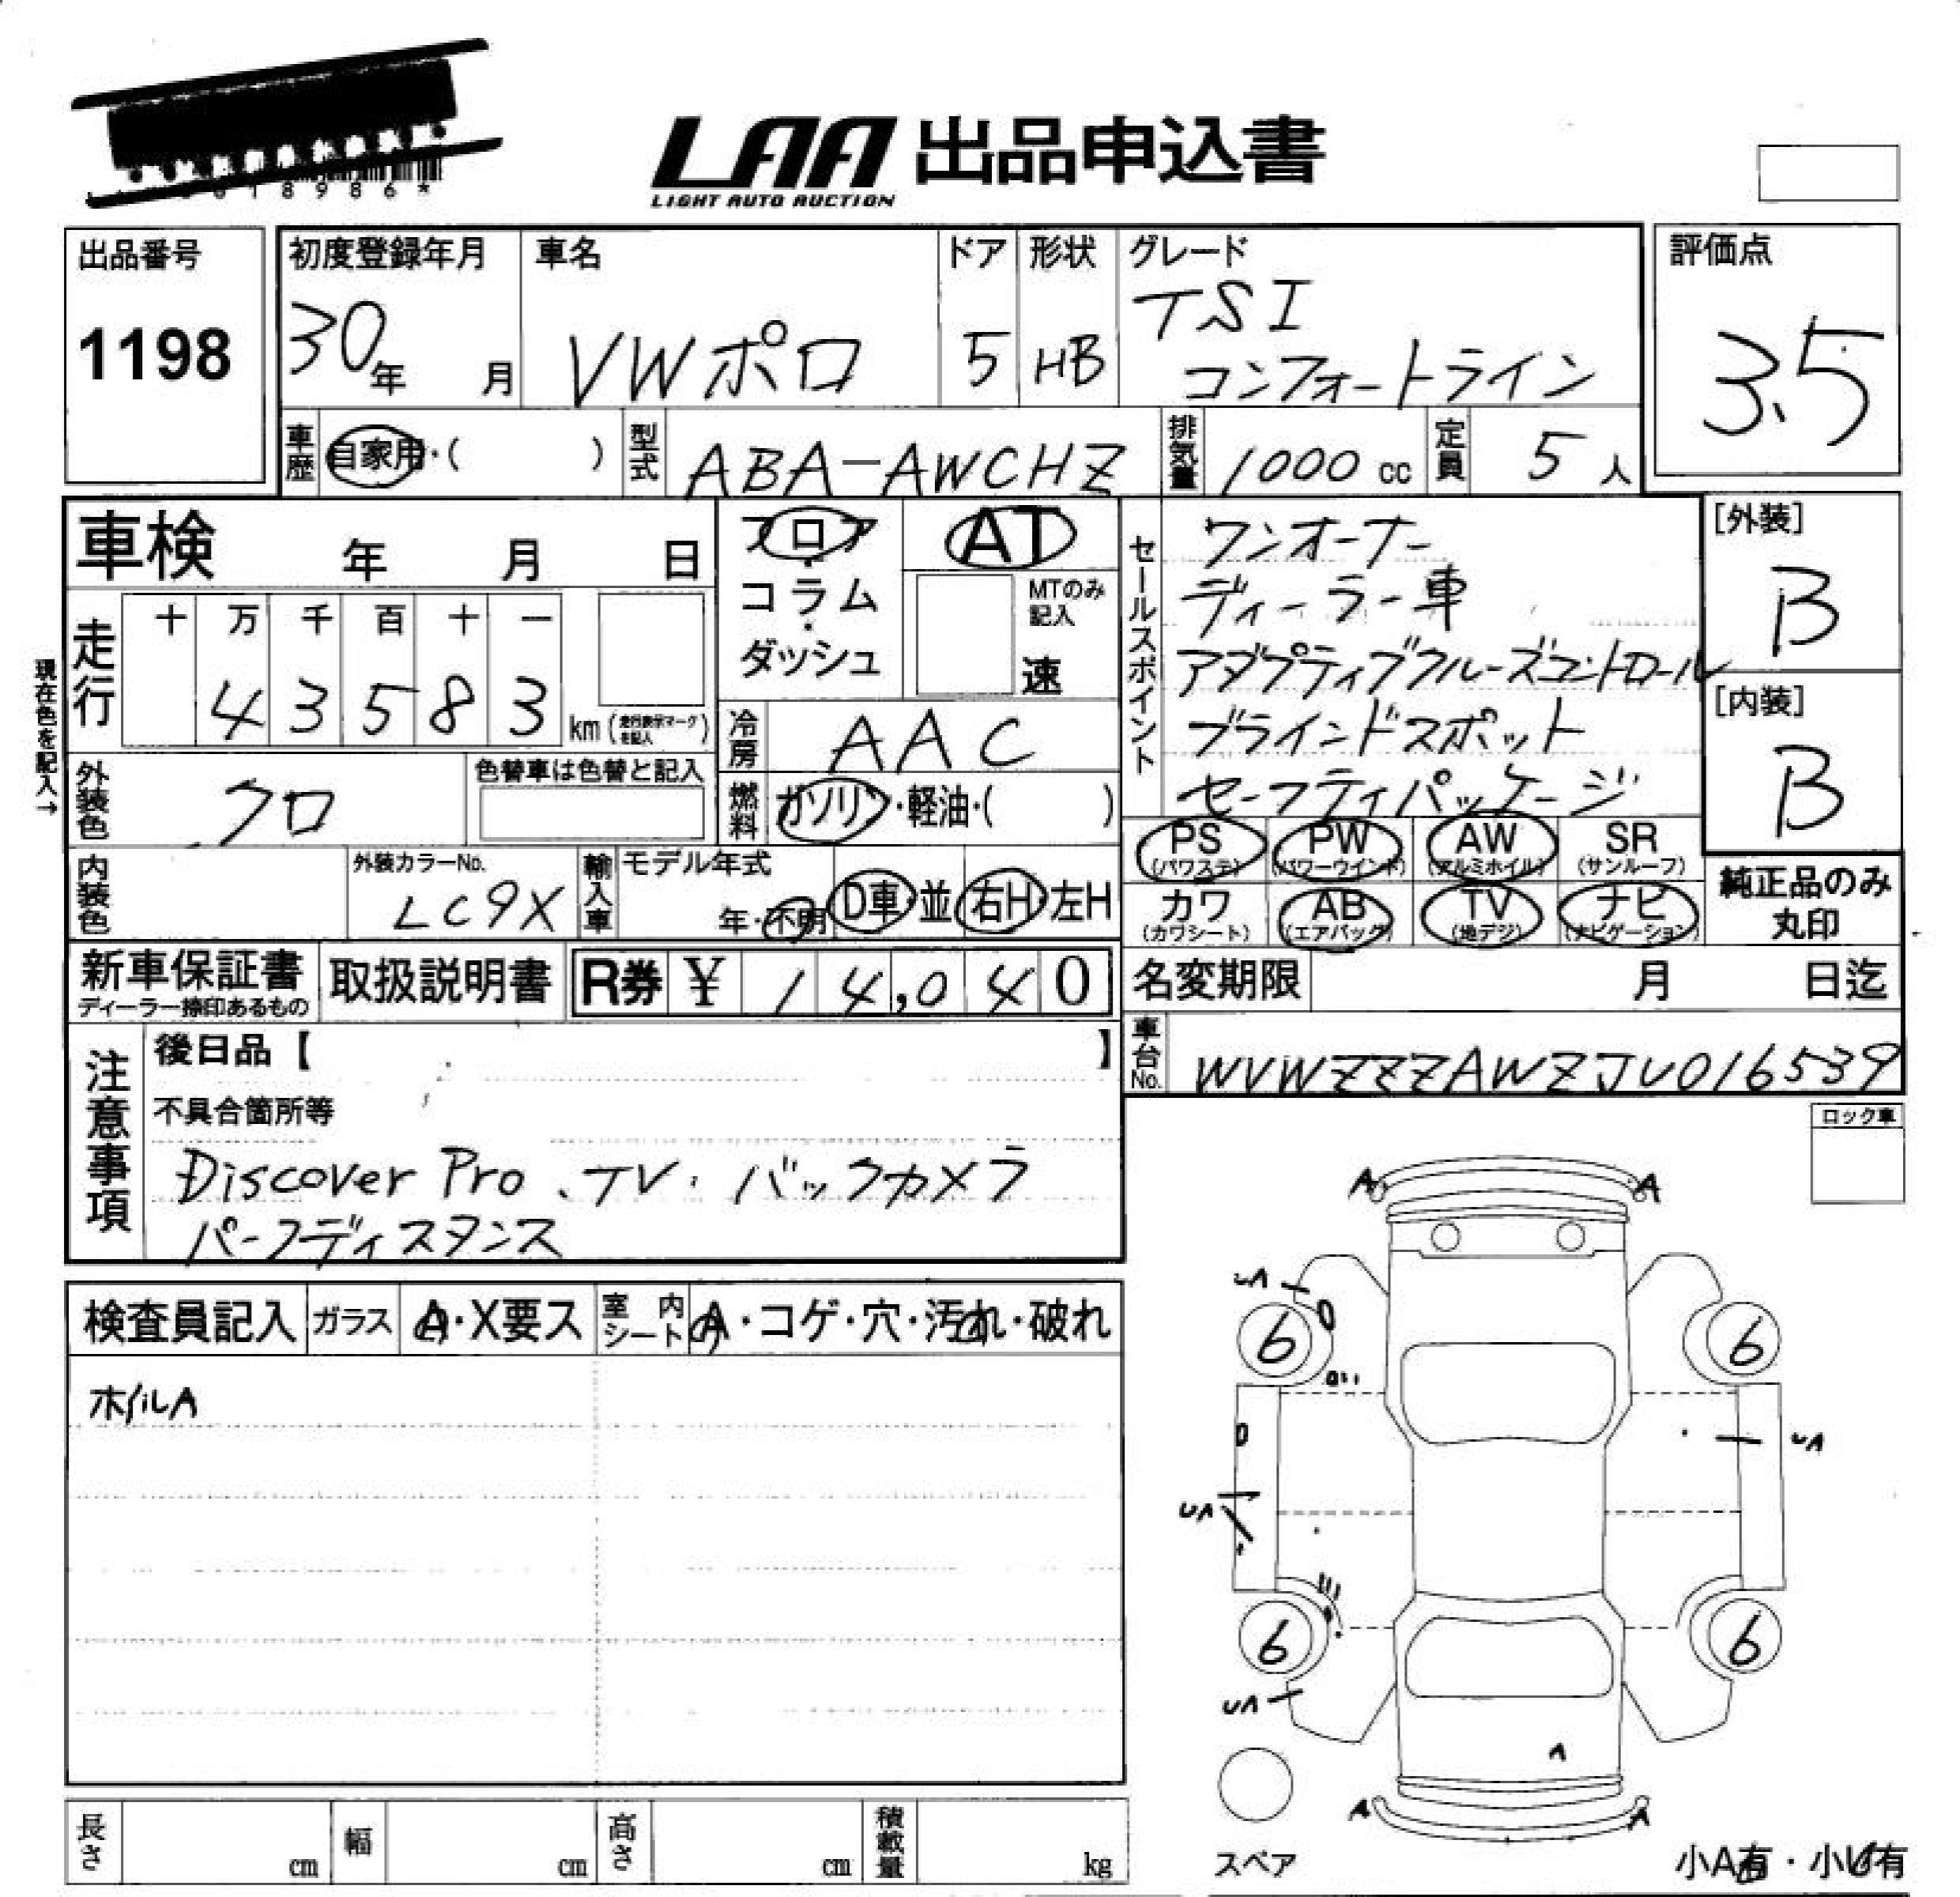 18986*
LAA 出品申込書
LIGHT AUTO AUCTION
出品番号
1198
初度登録年月
30年 月
車名
VWポロ
ドア
5
形状
HB
グレード
TSI
コンフォートライン
評価点
3.5
車歴
自家用・( )
型式
ABA-AWCHZ
排気量
1000 cc
定員
5人
車検 年 月 日
フロア
・
コラム
・
ダッシュ
AT
MTのみ
記入
速
セールスポイント
ワンオーナー
ディーラー車
アダプティブクルーズコントロール
ブラインドスポット
セーフティパッケージ
[外装]
B
[内装]
B
現在色を記入→
走行
十 万 千 百 十 一
4 3 5 8 3 km (走行表示マークを記入)
冷房
AAC
外装色
クロ
色替車は色替と記入
燃料
ガソリン・軽油・( )
PS
(パワステ)
PW
(パワーウインド)
AW
(アルミホイル)
SR
(サンルーフ)
カワ
(カワシート)
AB
(エアバッグ)
TV
(地デジ)
ナビ
(ナビゲーション)
純正品のみ
丸印
内装色
外装カラーNo.
LC9X
輸入車
モデル年式
年・不明
D車・並
右H・左H
新車保証書
ディーラー捺印あるもの
取扱説明書
R券 ¥ 14,040
名変期限 月 日迄
車台No.
WVWZZZAWZJU016539
注意事項
後日品【 】
不具合箇所等
Discover Pro、TV、バックカメラ
パークディスタンス
ロック車
検査員記入
ガラス
A・X要ス
室内シート
A・コゲ・穴・汚れ・破れ
ホイルA
A A
UA
6 6
UA
UA
6 6
UA
A
A A
スペア
小A有・小U有
長さ cm
幅 cm
高さ cm
積載量 kg